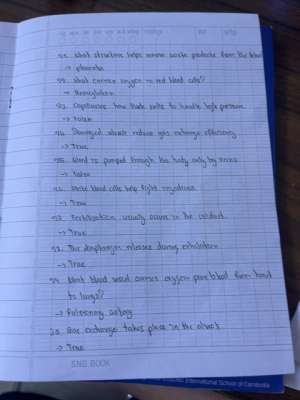 21. What structure helps remove waste products from the blood
→ placenta
22. What carries oxygen in red blood cells?
→ Hemoglobin
23. Capillaries have thick walls to handle high pressure
→ False
24. Damaged alveoli reduce gas exchange efficiency
→ True
25. Blood is pumped through the body only by veins
→ False
26. White blood cells help fight infections
→ True
27. Fertilization usually occurs in the oviduct.
→ True
28. The diaphragm relaxes during exhalation
→ True
29. What blood vessel carries oxygen poor blood from heart
to lungs?
→ Pulmonary artery
30. Gas exchange takes place in the alveoli
→ True
SNG BOOK
International School of Cambodia